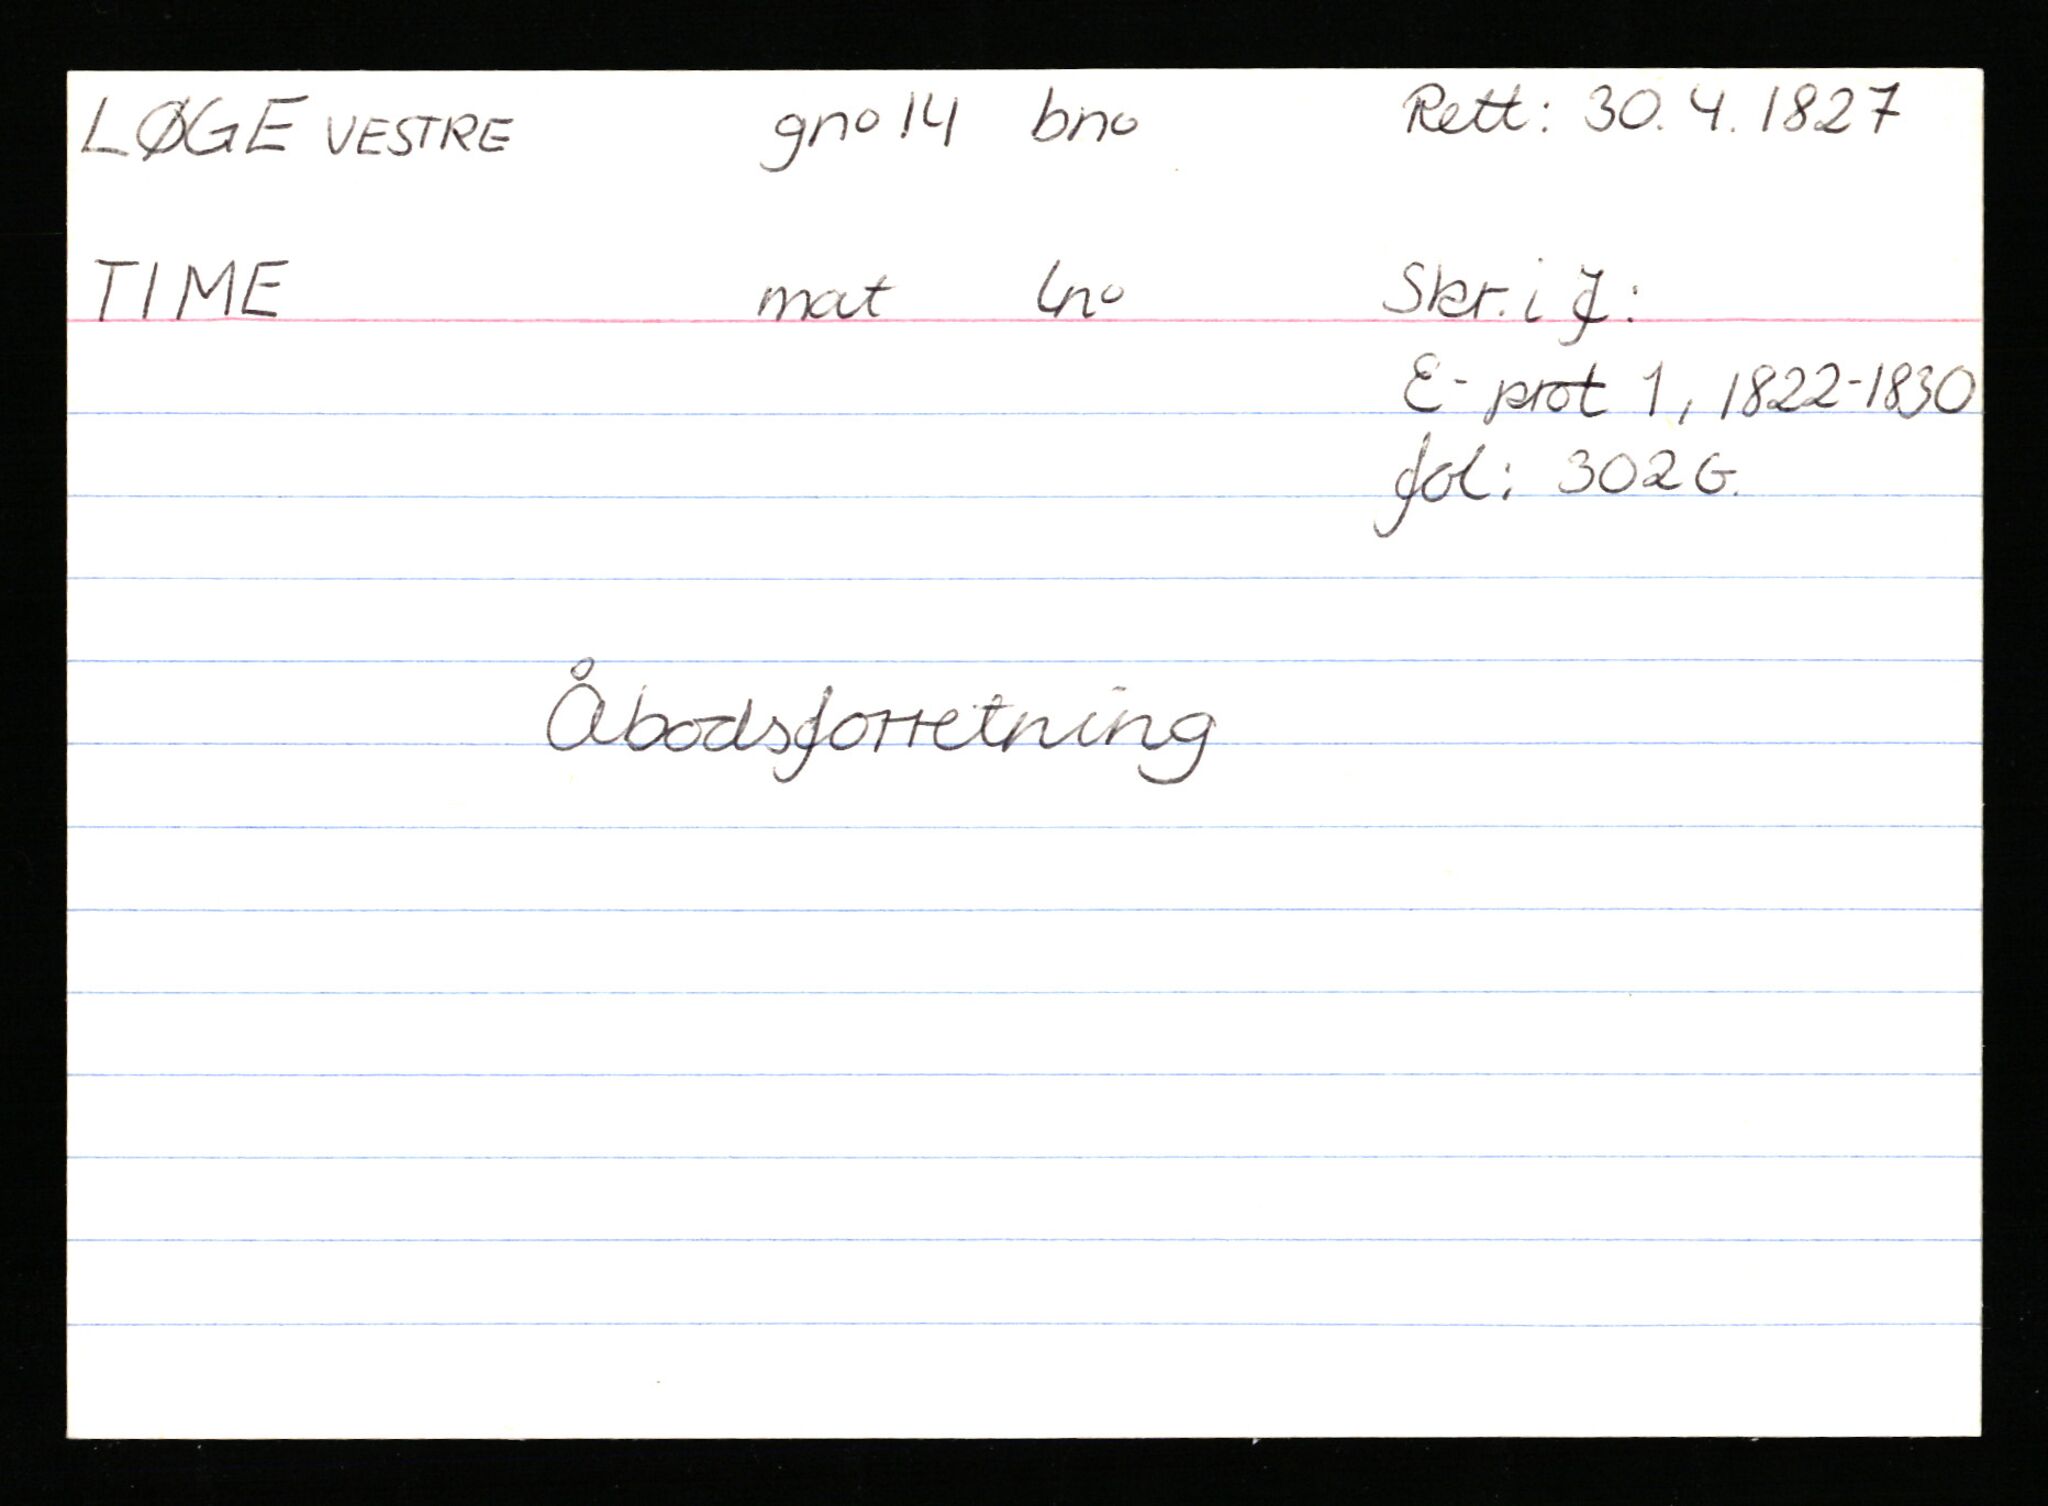 LØGE VESTRE gno 14 bno Rett: 30.4.1827
TIME mat lno Skr. i J:
E-prot 1, 1822-1830
fol: 302 G.
Åbodsforretning